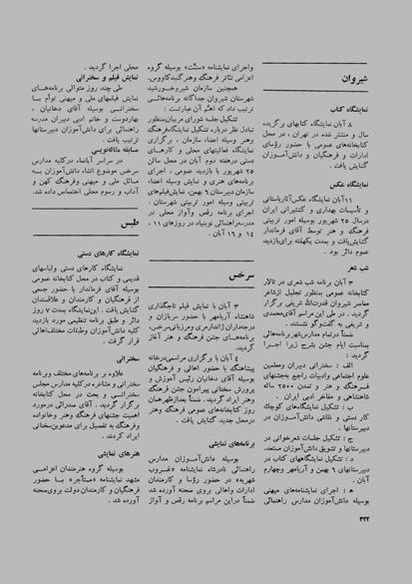 شیروان
نمایشگاه کتاب
۸ آبان نمایشگاه کتابهای برگزیده
سال و منتشر شده در تهران ، در محل
کتابخانه‌های عمومی با حضور رؤسای
ادارات و فرهنگیان و دانش‌آموزان
گشایش یافت .
نمایشگاه عکس
۱۱ آبان نمایشگاه عکس آثار باستانی
و تأسیسات بهداری و کشتیرانی ایران
در سال ۲۵ شهریور بوسیله امور تربیتی
فرهنگ و هنر توسط آقای فرماندار
گشایش یافت و بمدت یکهفته برای بازدید
عموم دائر بود .
شب شعر
۳ آبان برنامه شب شعری در تالار
کتابخانه عمومی بمنظور تجلیل از شاعر
معاصر شیروان قدرت‌الله شریفی برگزار
گردید . در طی این مراسم آقای محمدی
و شریفی به گفت‌وگو نشستند .
ضمناً در تمام مدارس شهر برنامه‌هائی
بمناسبت ایام جشن بشرح زیر اجرا
گردید :
الف : سخنرانی دبیران و معلمین
علوم اجتماعی و ادبیات راجع به جشنهای
فرهنگ و هنر و تمدن ۲۵۰۰ ساله
شاهنشاهی و مفاخر ادبی ایران .
ب : تشکیل نمایشگاههای کوچک
کار دستی و نقاشی دانش‌آموزان در
دبیرستانها .
ج : تشکیل جلسات شعرخوانی در
دبیرستانها و تشویق دانش‌آموزان مستعد.
د : تشکیل نمایشگاههای کتاب در
دبیرستانهای ۶ بهمن و آریامهر و چهارم
آبان .
ه : اجرای نمایشنامه‌های میهنی
بوسیله دانش‌آموزان مدارس راهنمائی
و اجرای نمایشنامه «سنّت» بوسیله گروه
اعزامی تئاتر فرهنگ و هنر گنبدکاووس.
همچنین سازمان شیر و خورشید
شهرستان شیروان جداگانه برنامه‌هائی
ترتیب داد که اهم آن عبارتست :
تشکیل جلسه شورای مربیان بمنظور
تبادل نظر درباره تشکیل نمایشگاه فرهنگ
وهنر وسیله اعضاء سازمان ، برگزاری
نمایشگاه فعالیتهای محلی و کارهای
دستی در هفته دوم آبان در محل سالن
۲۵ شهریور با بازدید عمومی ، اجرای
برنامه‌های هنری و نمایش وسیله اعضاء
سازمان دبیرستان ۶ بهمن، نمایش فیلم‌های
تربیتی وسیله امور تربیتی شهرستان ،
اجرای برنامه رقص و آواز محلی در
مدرسه راهنمائی نوبنیاد در روزهای ۱۱ ،
۱۴ و ۱۶ آبان .
سرخس
۳ آبان با نمایش فیلم تاجگذاری
شاهنشاه آریامهر با حضور سربازان و
درجه‌داران ژاندارمری و مرزبانی سرخس،
برنامه‌های جشن فرهنگ و هنر آغاز
گردید.
۴ آبان با برگزاری مراسمی درخانه
پیشاهنگ با حضور اهالی و فرهنگیان
بوسیله آقای دخانیان رئیس آموزش و
پرورش سخنانی پیرامون جشن فرهنگ
وهنر ایراد گردید . ضمناً بعدازظهر همان
روز کتابخانه‌های عمومی فرهنگ وهنر
در محل جدید گشایش یافت .
برنامه‌های نمایشی
بوسیله دانش‌آموزان مدارس
راهنمائی نادرشاه نمایشنامه «غروب
شهریه» در حضور رؤسا و کارمندان
ادارات و اهالی بروی صحنه آورده شد
ضمناً در این مراسم برنامه رقص و آواز
محلی اجرا گردید .
نمایش فیلم و سخنرانی
طی چند روز متوالی برنامه‌های
نمایش فیلمهای ملی و میهنی توأم با
سخنرانی بوسیله آقای دخانیان ،
بهاردوست و خانم ادبی دبیران مدرسه
راهنمائی برای دانش‌آموزان دبیرستانها
ترتیب یافت .
مسابقه مقاله‌نویسی
در سراسر آبانماه در کلیه مدارس
سرخس موضوع انشاء دانش‌آموزان به
مسائل ملی و میهنی وفرهنگ کهن و
آداب و رسوم محلی اختصاص داده شد.
طبس
نمایشگاه کارهای دستی
نمایشگاه کارهای دستی ولباسهای
قدیمی و کتاب در محل کتابخانه عمومی
بوسیله آقای فرماندار با حضور جمعی
از فرهنگیان و کارمندان و علاقمندان
گشایش یافت . این نمایشگاه بمدت ۷ روز
دائر و طبق برنامه تنظیمی مورد بازدید
کلیه دانش‌آموزان وطبقات مختلف اهالی
قرار گرفت .
سخنرانی
علاوه بر برنامه‌های مختلف وبرنامه
سخنرانی و مشاعره در کلیه مدارس مجلس
سخنرانی و بحث در محل کتابخانه
برگزار گردید . آقای صدرائی درمورد
اهمیت جشنهای فرهنگ وهنر وخانواده
وفرهنگ به تفصیل برای مدعوین سخنانی
ایراد کردند .
هنرهای نمایشی
بوسیله گروه هنرمندان اعزامی
مشهد نمایشنامه «مستأجر» با حضور
فرهنگیان و کارمندان دولت بروی صحنه
آورده شد .
۴۳۲